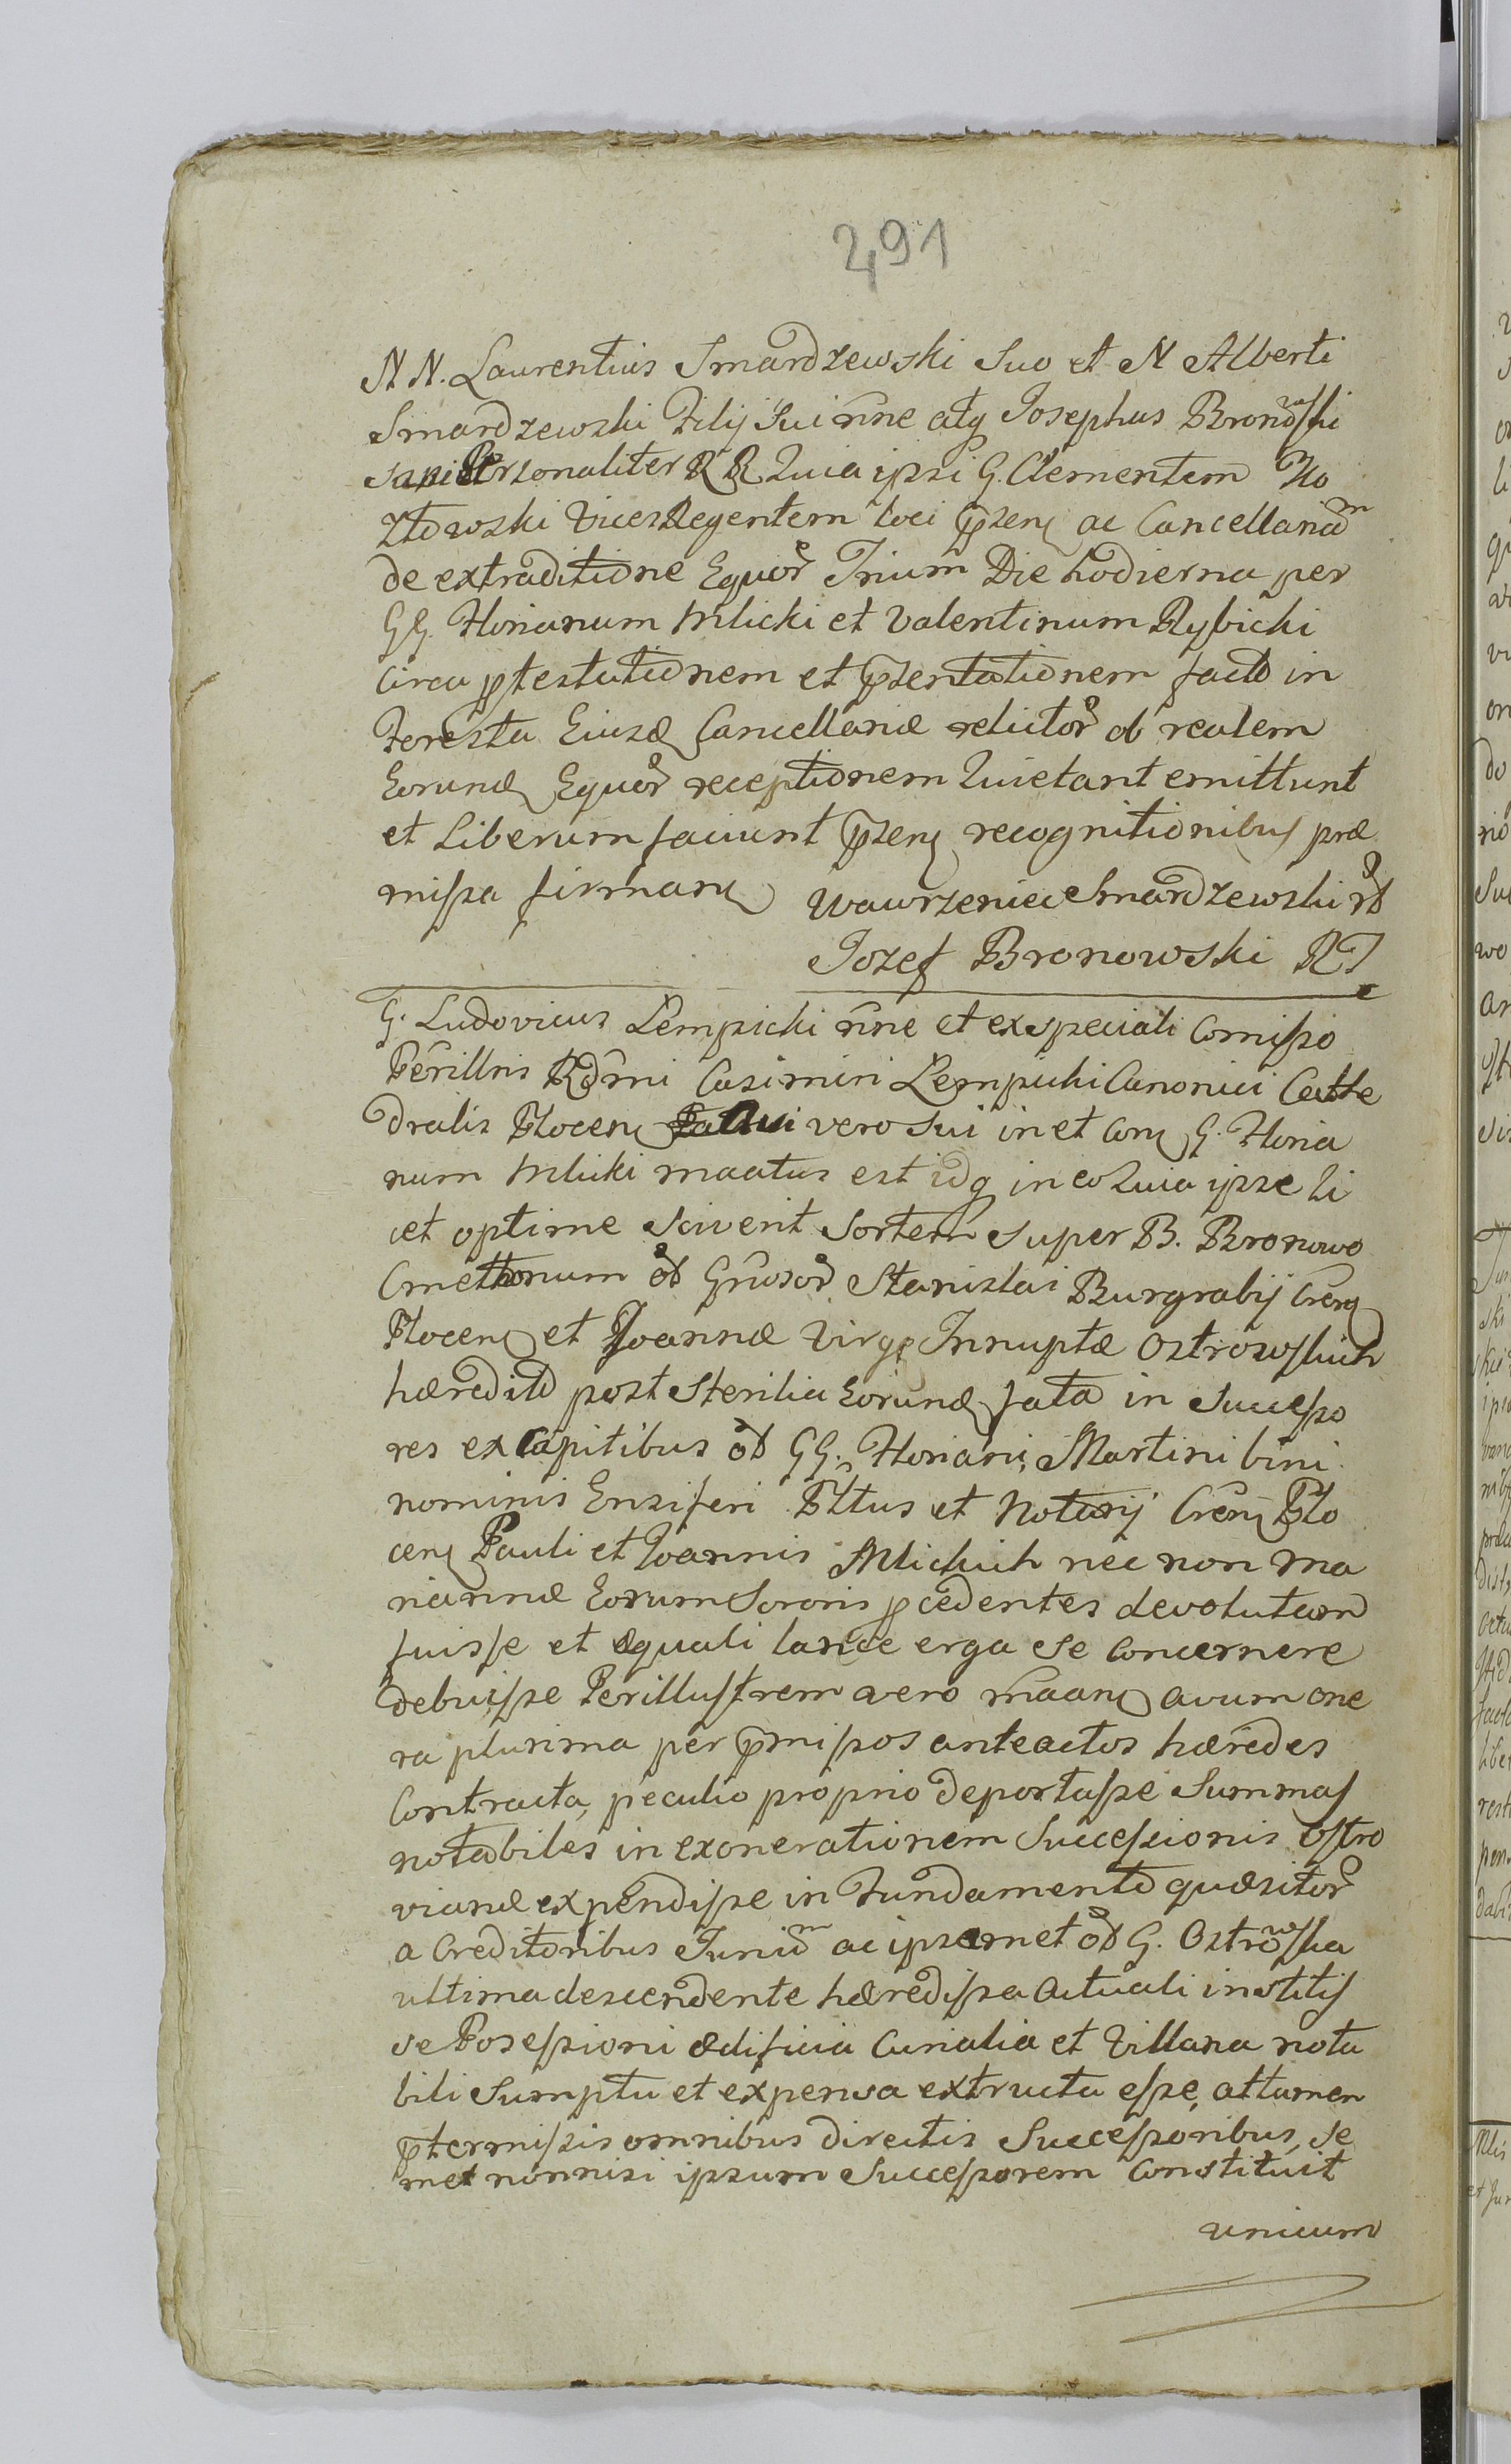 291
N N. Laurentius Smardzewski Suo et N Alberti
Smardzewski Filij Sui nne atq Josephus Bronowski
sani Personaliter R R Quia ipsi G. Clementem Ko
złowski Vices Regentem loci pzens ac Cancellariam
de extraditione Equor Trium Die hodierna per
GG. Florianum Mlicki et Valentinum Rybicki
circa ptestationem et pzentationem facto in
Foresta Eiusd Cancellariæ relictor ob realem
Eorund Equor receptionem Quietant emittunt
et Liberum faciunt pzens recognitionibus præ
missa firmans Wawrzeniec Smardzewski
Jozef Bronowski
G. Ludovicus Lempicki nne et ex speciali Comisso
Perillris Rdmi Casimiri Lempicki Canonici Cathe
dralis Plocens Patrui vero sui in et con G. Floria
num Mlicki maatus est idq in eo Quia ipse li
cet optime sciverit Sortem super B. Bronowo
Cmethonum od Grosor Stanislai Burgrabij Crens
Plocens et Joannæ Virgs Innuptæ Ostrowskich
hæredit post sterilia Eorund fata in Successo
res ex Capitibus od GG. Floriani, Martini bini
nominis Ensiferi Pltus et Notarij Crens Plo
cens Pauli et Joannis Mlickich nec non Ma
riannæ Eorum Sororis pcedentes devolutam
fuisse et æquali lance erga se concernere
debuisse Perillustrem vero maans avum one
ra plurima per pmissos anteactos hæredes
Contracta, peculio proprio deportasse Summas
notabiles in exonerationem Successionis Ostro
vianæ expendisse in Fundamento quæsitor
a Creditoribus Jurium ac ipsamet od G. Ostrowska
ultima descendente hæredissa actuali institis
se Possessioni ædificia Curialia et Villana nota
bili Sumptu et expensa extructa esse, attamen
ptermissis omnibus directis Successoribus, se
met nonnisi ipsum Successorem Constituit
unicum